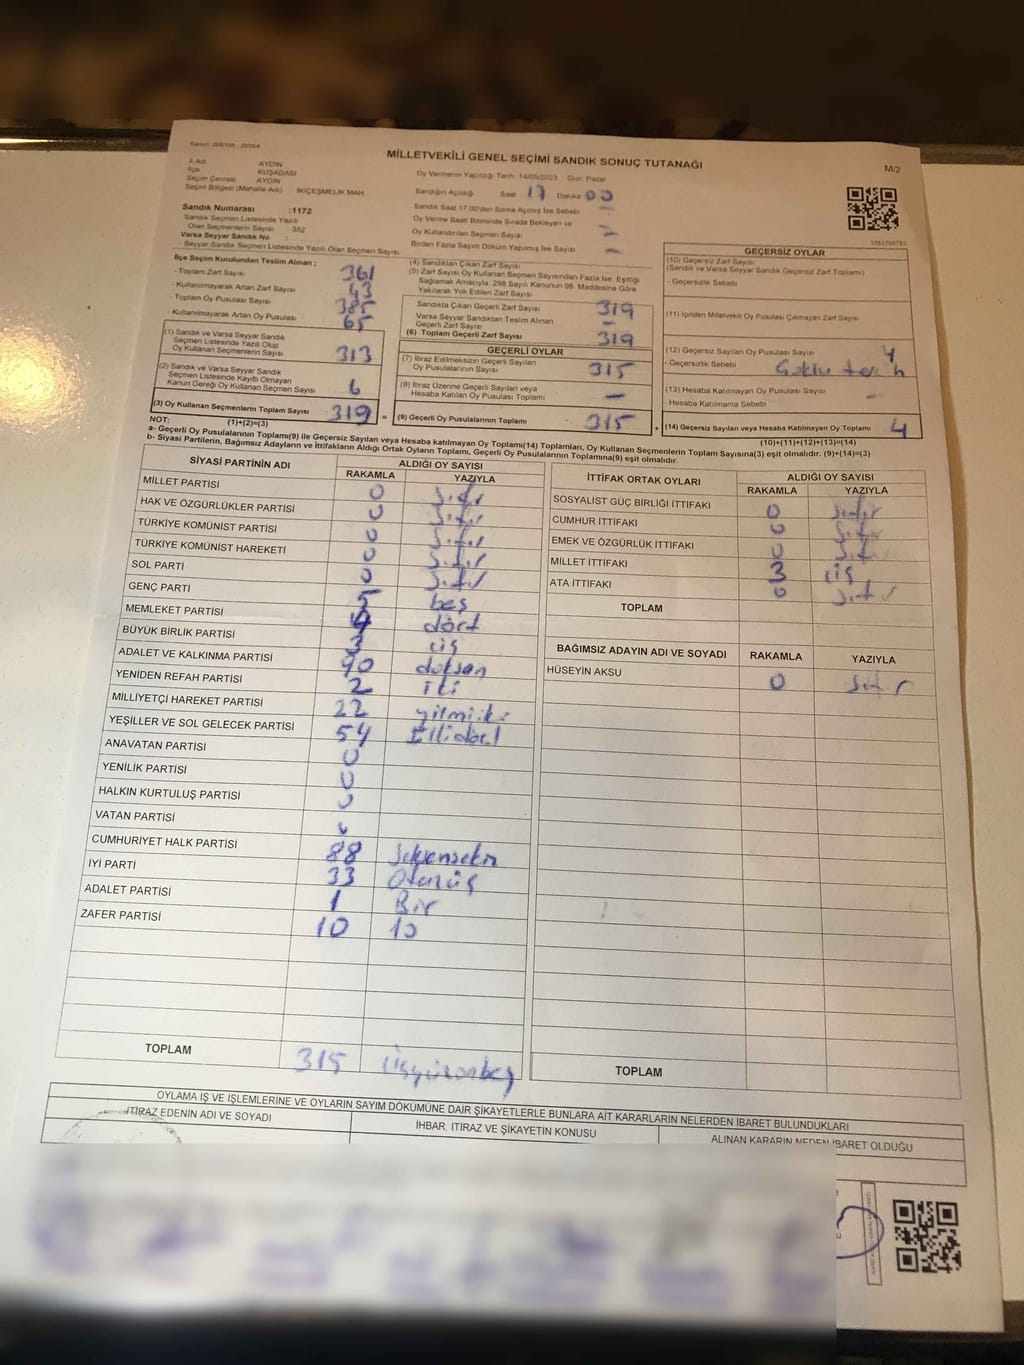 MİLLETVEKİLİ GENEL SEÇİMİ SANDIK SONUÇ TUTANAĞI
M/2
İl Adı AYDIN
İlçe KUŞADASI
Seçim Çevresi AYDIN
Seçim Bölgesi (Mahalle Adı) İKİÇEŞMELİK MAH.
Oy Vermenin Yapıldığı Tarih: 14/05/2023 Gün: Pazar
Sandığın Açıldığı Saat 17 Dakika 00
Sandık Saat 17:00'den Sonra Açılmış İse Sebebi –
Oy Verme Saati Bitiminde Sırada Bekleyen ve
Oy Kullandırılan Seçmen Sayısı –
Birden Fazla Sayım Döküm Yapılmış İse Sayısı –
Sandık Numarası :1172
Sandık Seçmen Listesinde Yazılı
Olan Seçmenlerin Sayısı 352
Varsa Seyyar Sandık No :
Seyyar Sandık Seçmen Listesinde Yazılı Olan Seçmen Sayısı
İlçe Seçim Kurulundan Teslim Alınan ;
- Toplam Zarf Sayısı 361
- Kullanılmayarak Artan Zarf Sayısı 43
- Toplam Oy Pusulası Sayısı 385
- Kullanılmayarak Artan Oy Pusulası 65
(1) Sandık ve Varsa Seyyar Sandık
Seçmen Listesinde Yazılı Olup
Oy Kullanan Seçmenlerin Sayısı 313
(2) Sandık ve Varsa Seyyar Sandık
Seçmen Listesinde Kayıtlı Olmayan
Kanun Gereği Oy Kullanan Seçmen Sayısı 6
(3) Oy Kullanan Seçmenlerin Toplam Sayısı 319 =
(4) Sandıktan Çıkan Zarf Sayısı
(5) Zarf Sayısı Oy Kullanan Seçmen Sayısından Fazla İse, Eşitliği
Sağlamak Amacıyla, 298 Sayılı Kanunun 98. Maddesine Göre
Yakılarak Yok Edilen Zarf Sayısı
Sandıkta Çıkan Geçerli Zarf Sayısı 319
Varsa Seyyar Sandıktan Teslim Alınan
Geçerli Zarf Sayısı –
(6) Toplam Geçerli Zarf Sayısı 319
GEÇERLİ OYLAR
(7) İtiraz Edilmeksizin Geçerli Sayılan
Oy Pusulalarının Sayısı 315
(8) İtiraz Üzerine Geçerli Sayılan veya
Hesaba Katılan Oy Pusulası Toplamı –
(9) Geçerli Oy Pusulalarının Toplamı 315 +
GEÇERSİZ OYLAR
(10) Geçersiz Zarf Sayısı
(Sandık ve Varsa Seyyar Sandık Geçersiz Zarf Toplamı)
- Geçersizlik Sebebi
(11) İçinden Milletvekili Oy Pusulası Çıkmayan Zarf Sayısı
(12) Geçersiz Sayılan Oy Pusulası Sayısı 4
- Geçersizlik Sebebi
(13) Hesaba Katılmayan Oy Pusulası Sayısı
- Hesaba Katılmama Sebebi
(14) Geçersiz Sayılan veya Hesaba Katılmayan Oy Toplamı 4
NOT: (1)+(2)=(3)
(10)+(11)+(12)+(13)=(14)
a- Geçerli Oy Pusulalarının Toplamı(9) ile Geçersiz Sayılan veya Hesaba katılmayan Oy Toplamı(14) Toplamları, Oy Kullanan Seçmenlerin Toplam Sayısına(3) eşit olmalıdır. (9)+(14)=(3)
b- Siyasi Partilerin, Bağımsız Adayların ve İttifakların Aldığı Oyların Toplamı, Geçerli Oy Pusulalarının Toplamına(9) eşit olmalıdır.
SİYASİ PARTİNİN ADI ALDIĞI OY SAYISI
RAKAMLA YAZIYLA
MİLLET PARTİSİ 0 Sıfır
HAK VE ÖZGÜRLÜKLER PARTİSİ 0 Sıfır
TÜRKİYE KOMÜNİST PARTİSİ 0 Sıfır
TÜRKİYE KOMÜNİST HAREKETİ 0 Sıfır
SOL PARTİ 0 Sıfır
GENÇ PARTİ 5 beş
MEMLEKET PARTİSİ 4 dört
BÜYÜK BİRLİK PARTİSİ 3 üç
ADALET VE KALKINMA PARTİSİ 90 doksan
YENİDEN REFAH PARTİSİ 2 iki
MİLLİYETÇİ HAREKET PARTİSİ 22 yirmiiki
YEŞİLLER VE SOL GELECEK PARTİSİ 54 Ellidört
ANAVATAN PARTİSİ 0
YENİLİK PARTİSİ 0
HALKIN KURTULUŞ PARTİSİ 0
VATAN PARTİSİ
CUMHURİYET HALK PARTİSİ 88 Seksensekiz
İYİ PARTİ 33 Otuzüç
ADALET PARTİSİ 1 Bir
ZAFER PARTİSİ 10 10
TOPLAM 315 Üçyüzonbeş
İTTİFAK ORTAK OYLARI ALDIĞI OY SAYISI
RAKAMLA YAZIYLA
SOSYALİST GÜÇ BİRLİĞİ İTTİFAKI 0 Sıfır
CUMHUR İTTİFAKI 0 Sıfır
EMEK VE ÖZGÜRLÜK İTTİFAKI 0 Sıfır
MİLLET İTTİFAKI 3 üç
ATA İTTİFAKI 0 Sıfır
TOPLAM
BAĞIMSIZ ADAYIN ADI VE SOYADI RAKAMLA YAZIYLA
HÜSEYİN AKSU 0 Sıfır
TOPLAM
OYLAMA İŞ VE İŞLEMLERİNE VE OYLARIN SAYIM DÖKÜMÜNE DAİR ŞİKAYETLERLE BUNLARA AİT KARARLARIN NELERDEN İBARET BULUNDUKLARI
İTİRAZ EDENİN ADI VE SOYADI
İHBAR, İTİRAZ VE ŞİKAYETİN KONUSU
ALINAN KARARIN NEDEN İBARET OLDUĞU